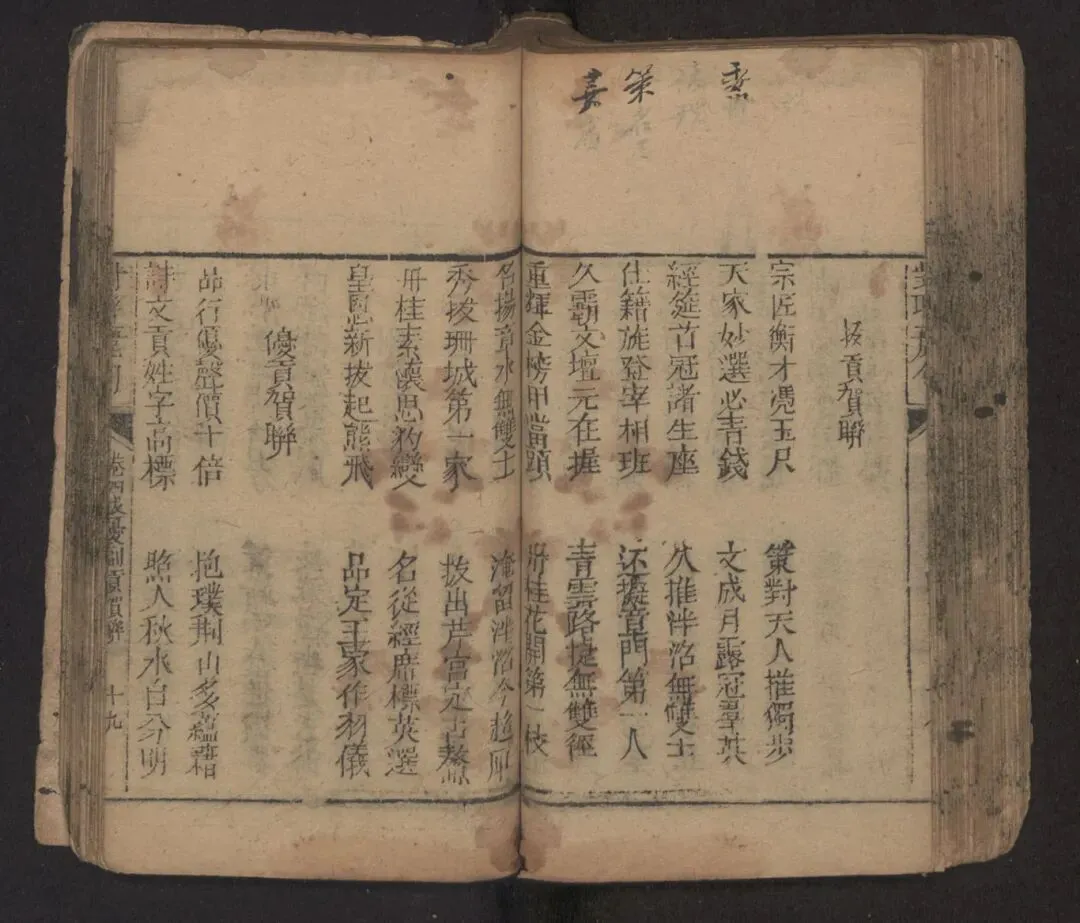 策
拔貢賀聯
宗匠衡才憑玉尺
策對天人推獨步
天家妙選必青錢
文成月露冠羣英
經筵苜冠諸生座
久推泮沼無雙士
仕籍旋登宰相班
还擬章門第一人
久霸文壇元在握
青雲路捷無雙徑
重輝金榜甲當頭
丹桂花開第一枝
名揚章水無雙士
淹留泮沼今趨
秀拔珊城第一家
拔出芹宮定占鰲
丹桂素懷思豹變
名從經席標英選
皇恩新拔起熊飛
品定王家作羽儀
優貢賀聯
品行優聲價十倍
抱璞荆山多蘊藉
詩文貢姓字高標
照人秋水自分明
卷四拔優副貢賀聯
十九